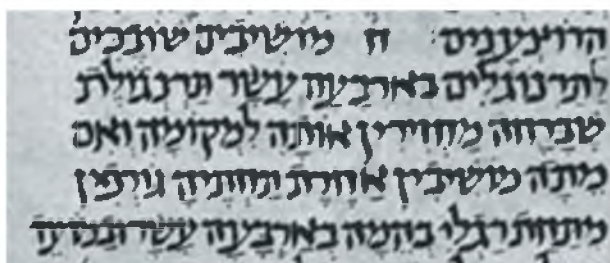 הרוצענים ׃ ח מושיבים שובכים
לתרנוגלים בארבעה עשר תרנגולת
שברחה מחזירין אותה למקומה ואם
מתה מושיבין אחרת תחותיה גורפין
מתחת רגלי בהמה בארבעה עשר